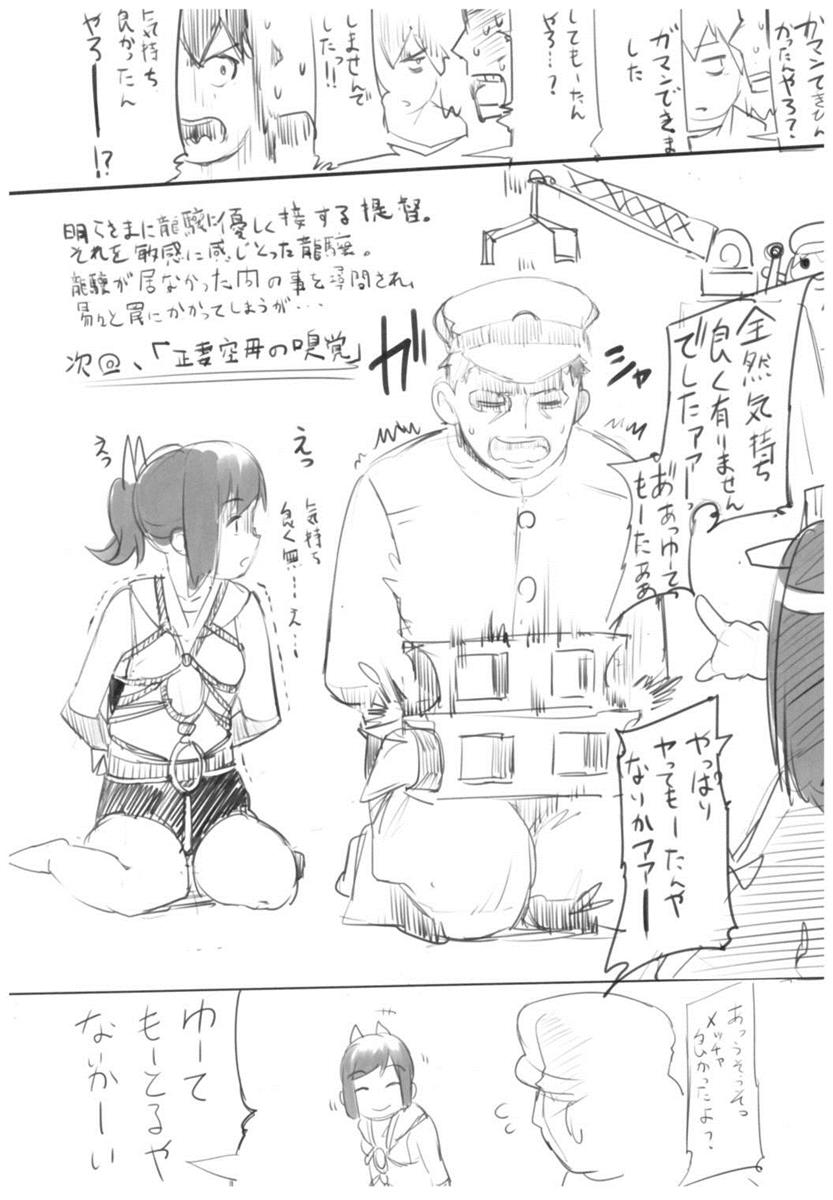 ガマンできひん
かったんやろ？
ガマンできま
した
してもーたん
やろ…？
しませんで
したっ!!
気持ち
良かったん
やろーーー!?
明らさまに龍驤に優しく接する提督。
それを敏感に感じとった龍驤。
龍驤が居なかった内の事を尋問され、
易々と罠にかかってしまうが・・・
次回、「正妻空母の嗅覚」
全然気持ち
良く有りません
でしたァァーっ
あぁっゆーて
もーたぁぁ
ガ
シャ
えっ
えっ
気持ち
良く無……え…
やっぱり
ヤってもーたんや
ないかアァーー
あっうそっそっ
メッチャ
良かったよ？
ゆーて
もーとるや
ないかーい